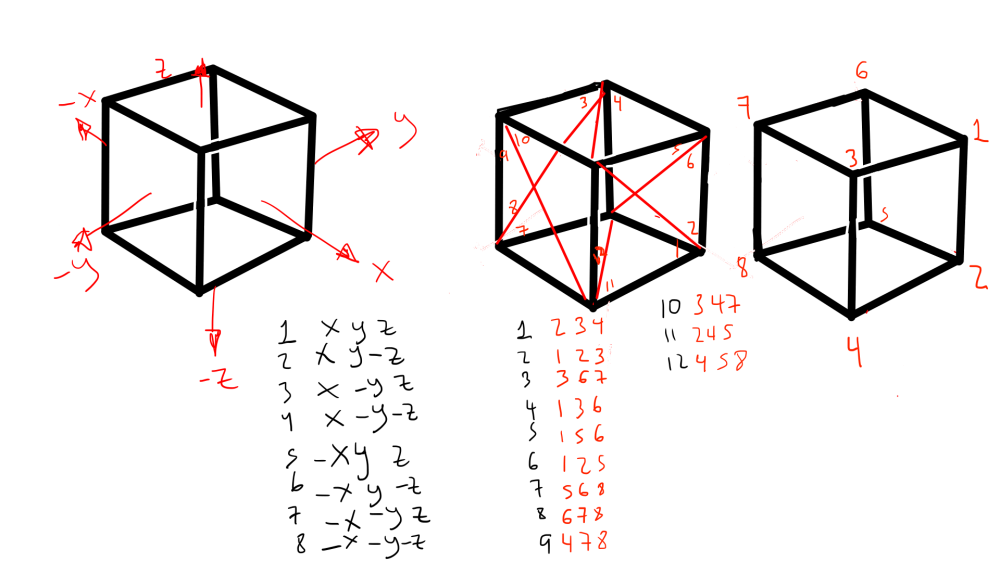 z
-x
y
-y
x
-z
1 x y z
2 x y -z
3 x -y z
4 x -y -z
5 -x y z
6 -x y -z
7 -x -y z
8 -x -y -z
3 4
10
9
5
6
8
7
2
1
12
11
1 2 3 4
2 1 2 3
3 3 6 7
4 1 3 6
5 1 5 6
6 1 2 5
7 5 6 8
8 6 7 8
9 4 7 8
10 3 4 7
11 2 4 5
12 4 5 8
6
7
1
3
5
8
2
4